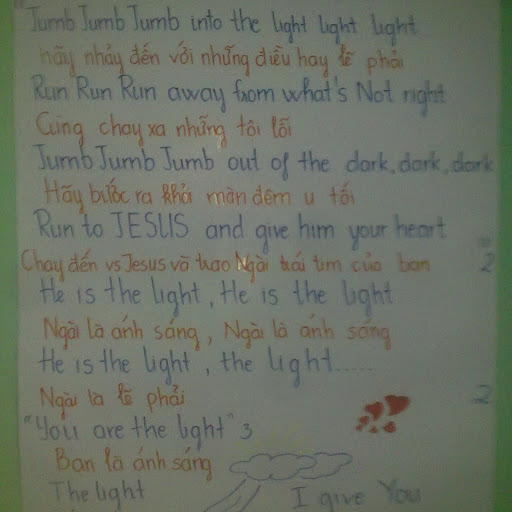 Jumb Jumb Jumb into the light light light
hãy nhảy đến với những điều hay lẽ phải
Run Run Run away from what's Not right
Cùng chạy xa những tôi lỗi
Jumb Jumb Jumb out of the dark, dark, dark
Hãy bước ra khỏi màn đêm u tối
Run to JESUS and give him your heart
Chạy đến vs Jesus và trao Ngài trái tim của bạn 2
He is the light, He is the light
Ngài là ánh sáng, Ngài là ánh sáng
He is the light, the light......
Ngài là lẽ phải 2
"You are the light" 3
Bạn là ánh sáng
The light
I give You